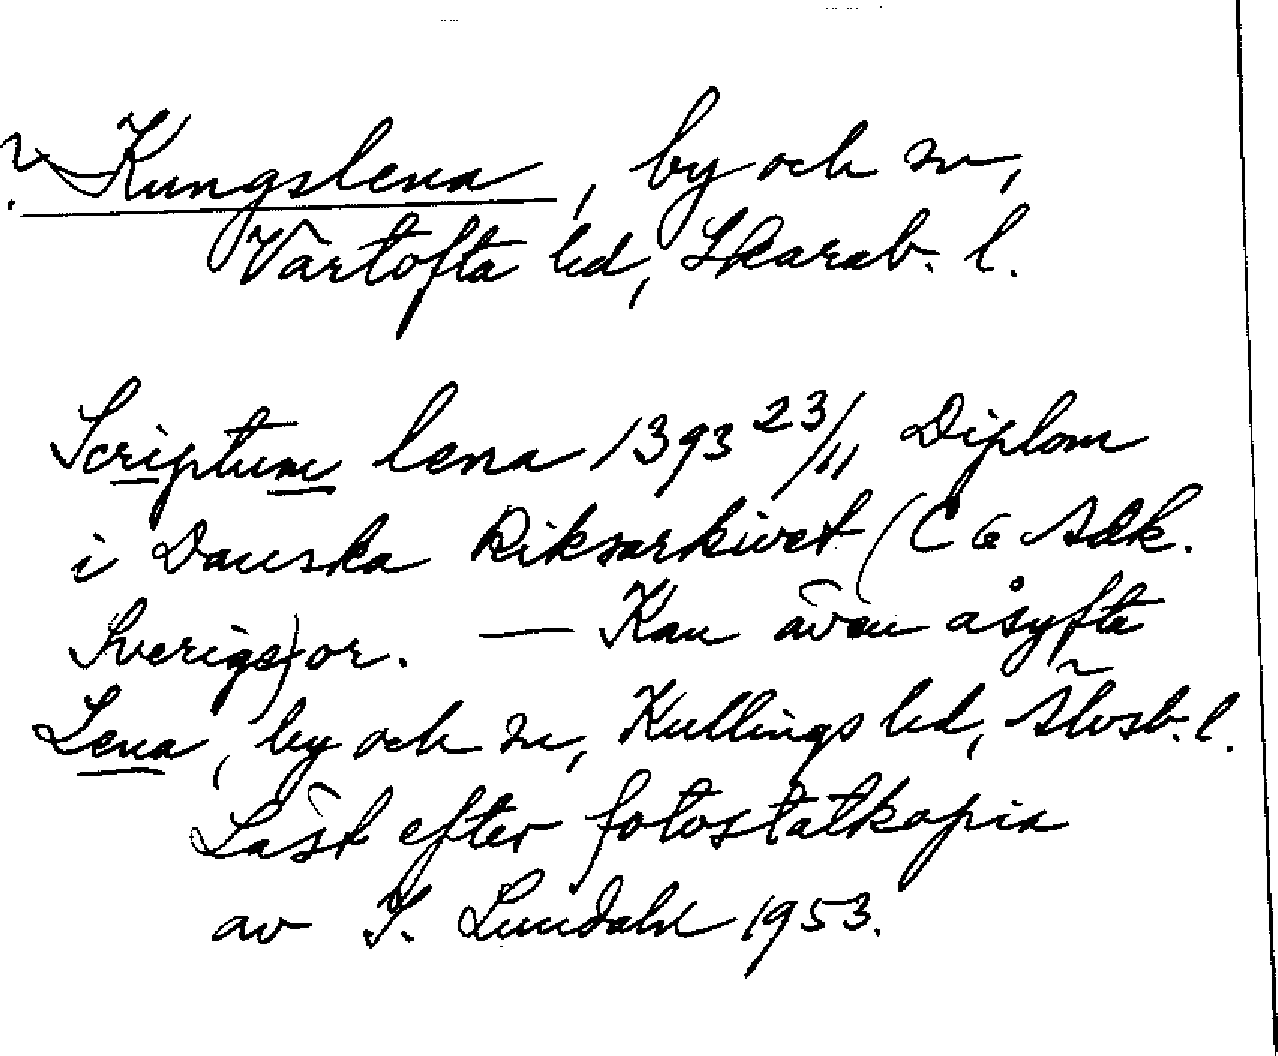 ? Kungslena, by och sn,
Vartofta hd, Skarab. l.
Scriptum lena 1393 23/11 Diplom
i Danska Riksarkivet (C 6 Adk.
Sverige) or. — Kan även åsyfta
Lena, by och sn, Kullings hd, Älvsb. l.
Läst efter fotostatkopia
av I. Lundahl 1953.